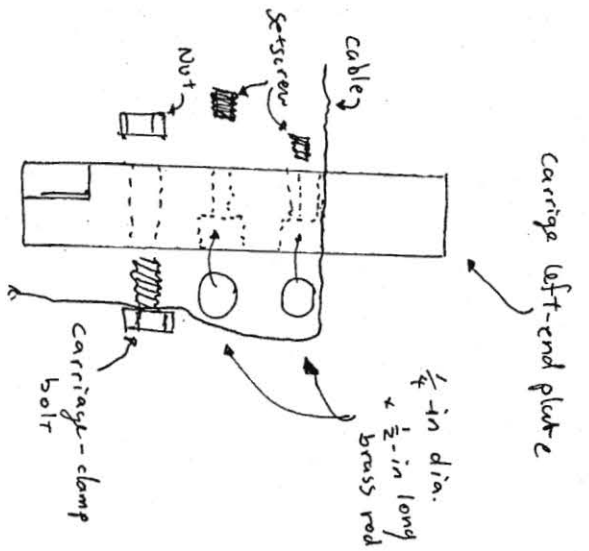 Carrige left-end plate
1/4-in dia.
x 1/2-in long
brass rod
Cable
Setscrew
Nut
Carriage-clamp
bolt